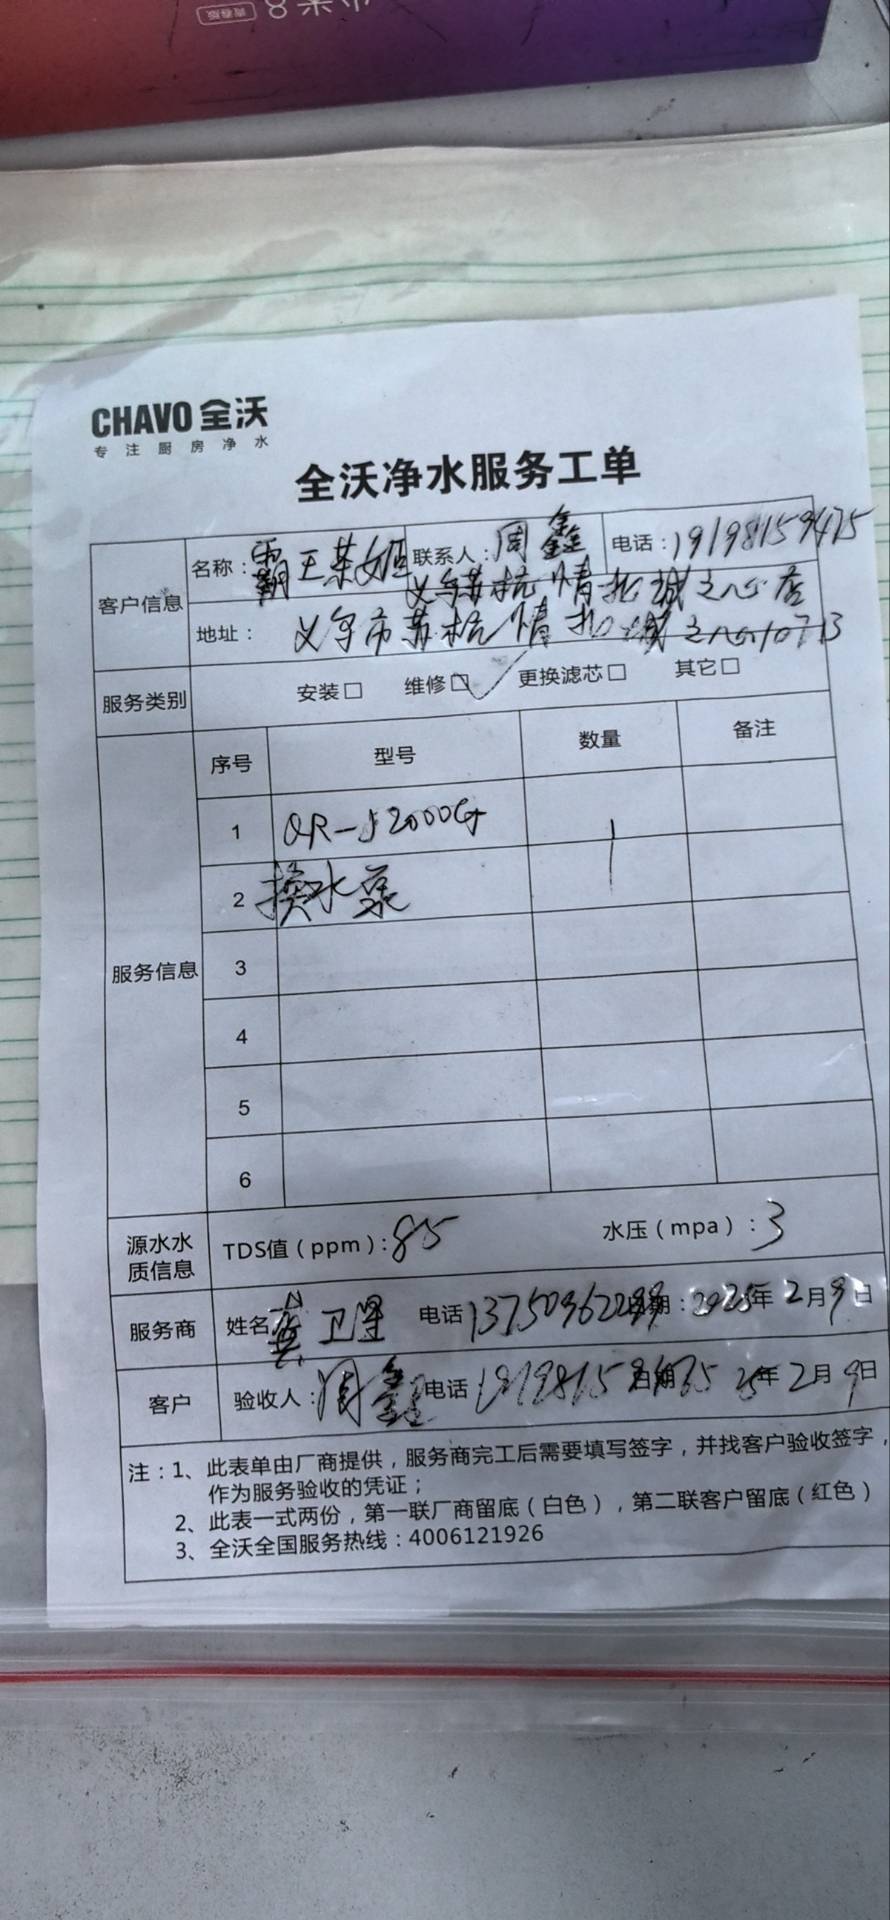 青春版
CHAVO 全沃
专注厨房净水
全沃净水服务工单
客户信息
名称：霸王茶姬 联系人：周鑫 电话：19198159475
义乌苏杭情 城之心店
地址：义乌市苏杭情 城之心
服务类别 安装□ 维修□✓ 更换滤芯□ 其它□
服务信息
序号 型号 数量 备注
1 QR-J2000G 1
2 换水泵
3
4
5
6
源水水质信息 TDS值（ppm）：85 水压（mpa）：3
服务商 姓名 龚卫 电话 日期：2025年2月9日
客户 验收人：周鑫 电话 日期 25年2月9日
注：1、此表单由厂商提供，服务商完工后需要填写签字，并找客户验收签字，
作为服务验收的凭证；
2、此表一式两份，第一联厂商留底（白色），第二联客户留底（红色）
3、全沃全国服务热线：4006121926